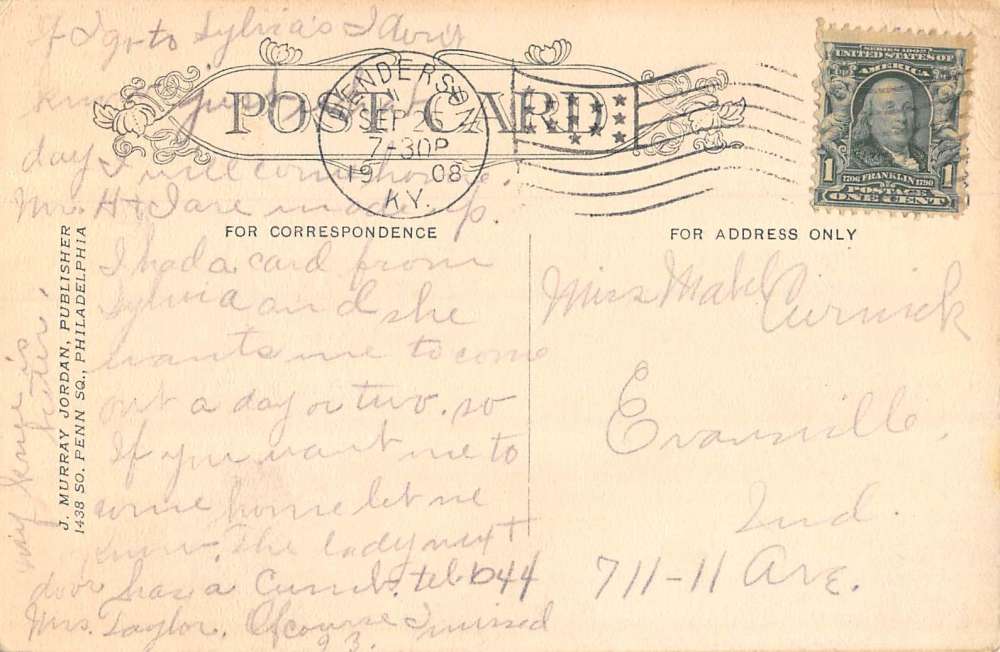 If I go to Sylvia's I don't
know just what
day I will come home.
Mr. H & I are made up.
POST CARD
HENDERSON
SEP 25
7-30P
1908
KY.
SERIES 1902
UNITED STATES OF
AMERICA
1706 FRANKLIN 1790
POSTAGE
1 ONE CENT 1
FOR CORRESPONDENCE
I had a card from
Sylvia and she
wants me to come
out a day or two. so
If you want me to
come home let me
know. The lady next
door has a Cumb. tel. 1044
Mrs. Taylor. Of course I missed
93.
my knee is
better.
J. MURRAY JORDAN, PUBLISHER
1438 SO. PENN SQ., PHILADELPHIA
FOR ADDRESS ONLY
Miss Mabel Curnick
Evansville.
Ind.
711-11 Ave.